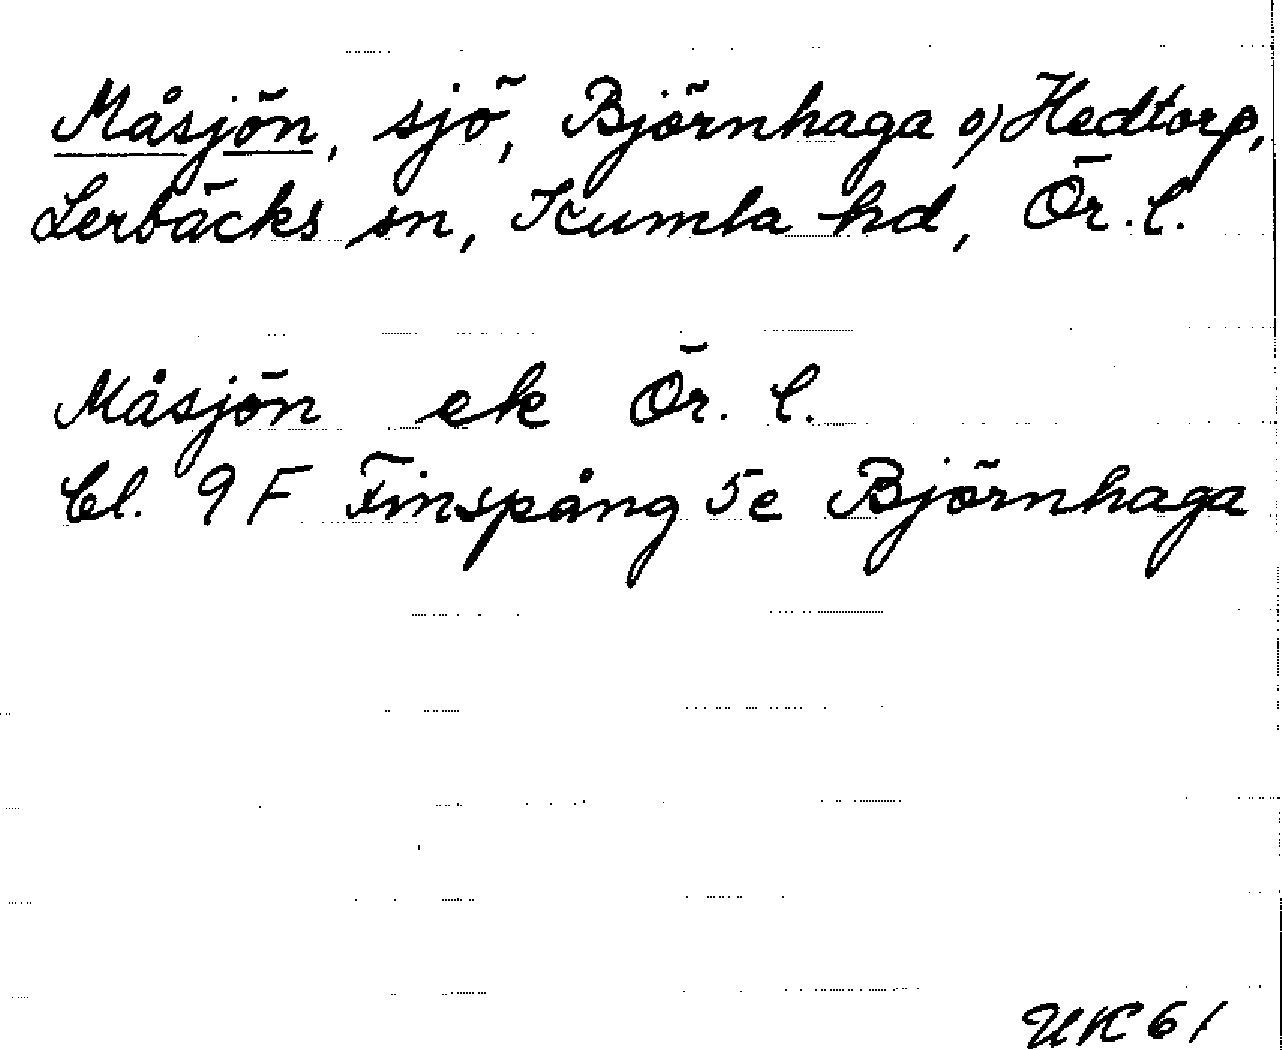 Måsjön, sjö, Björnhaga o) Hedtorp,
Lerbäcks sn, Kumla hd, Ör. l.
Måsjön ek Ör. l.
Bl. 9 F Finspång 5e Björnhaga
UK 61